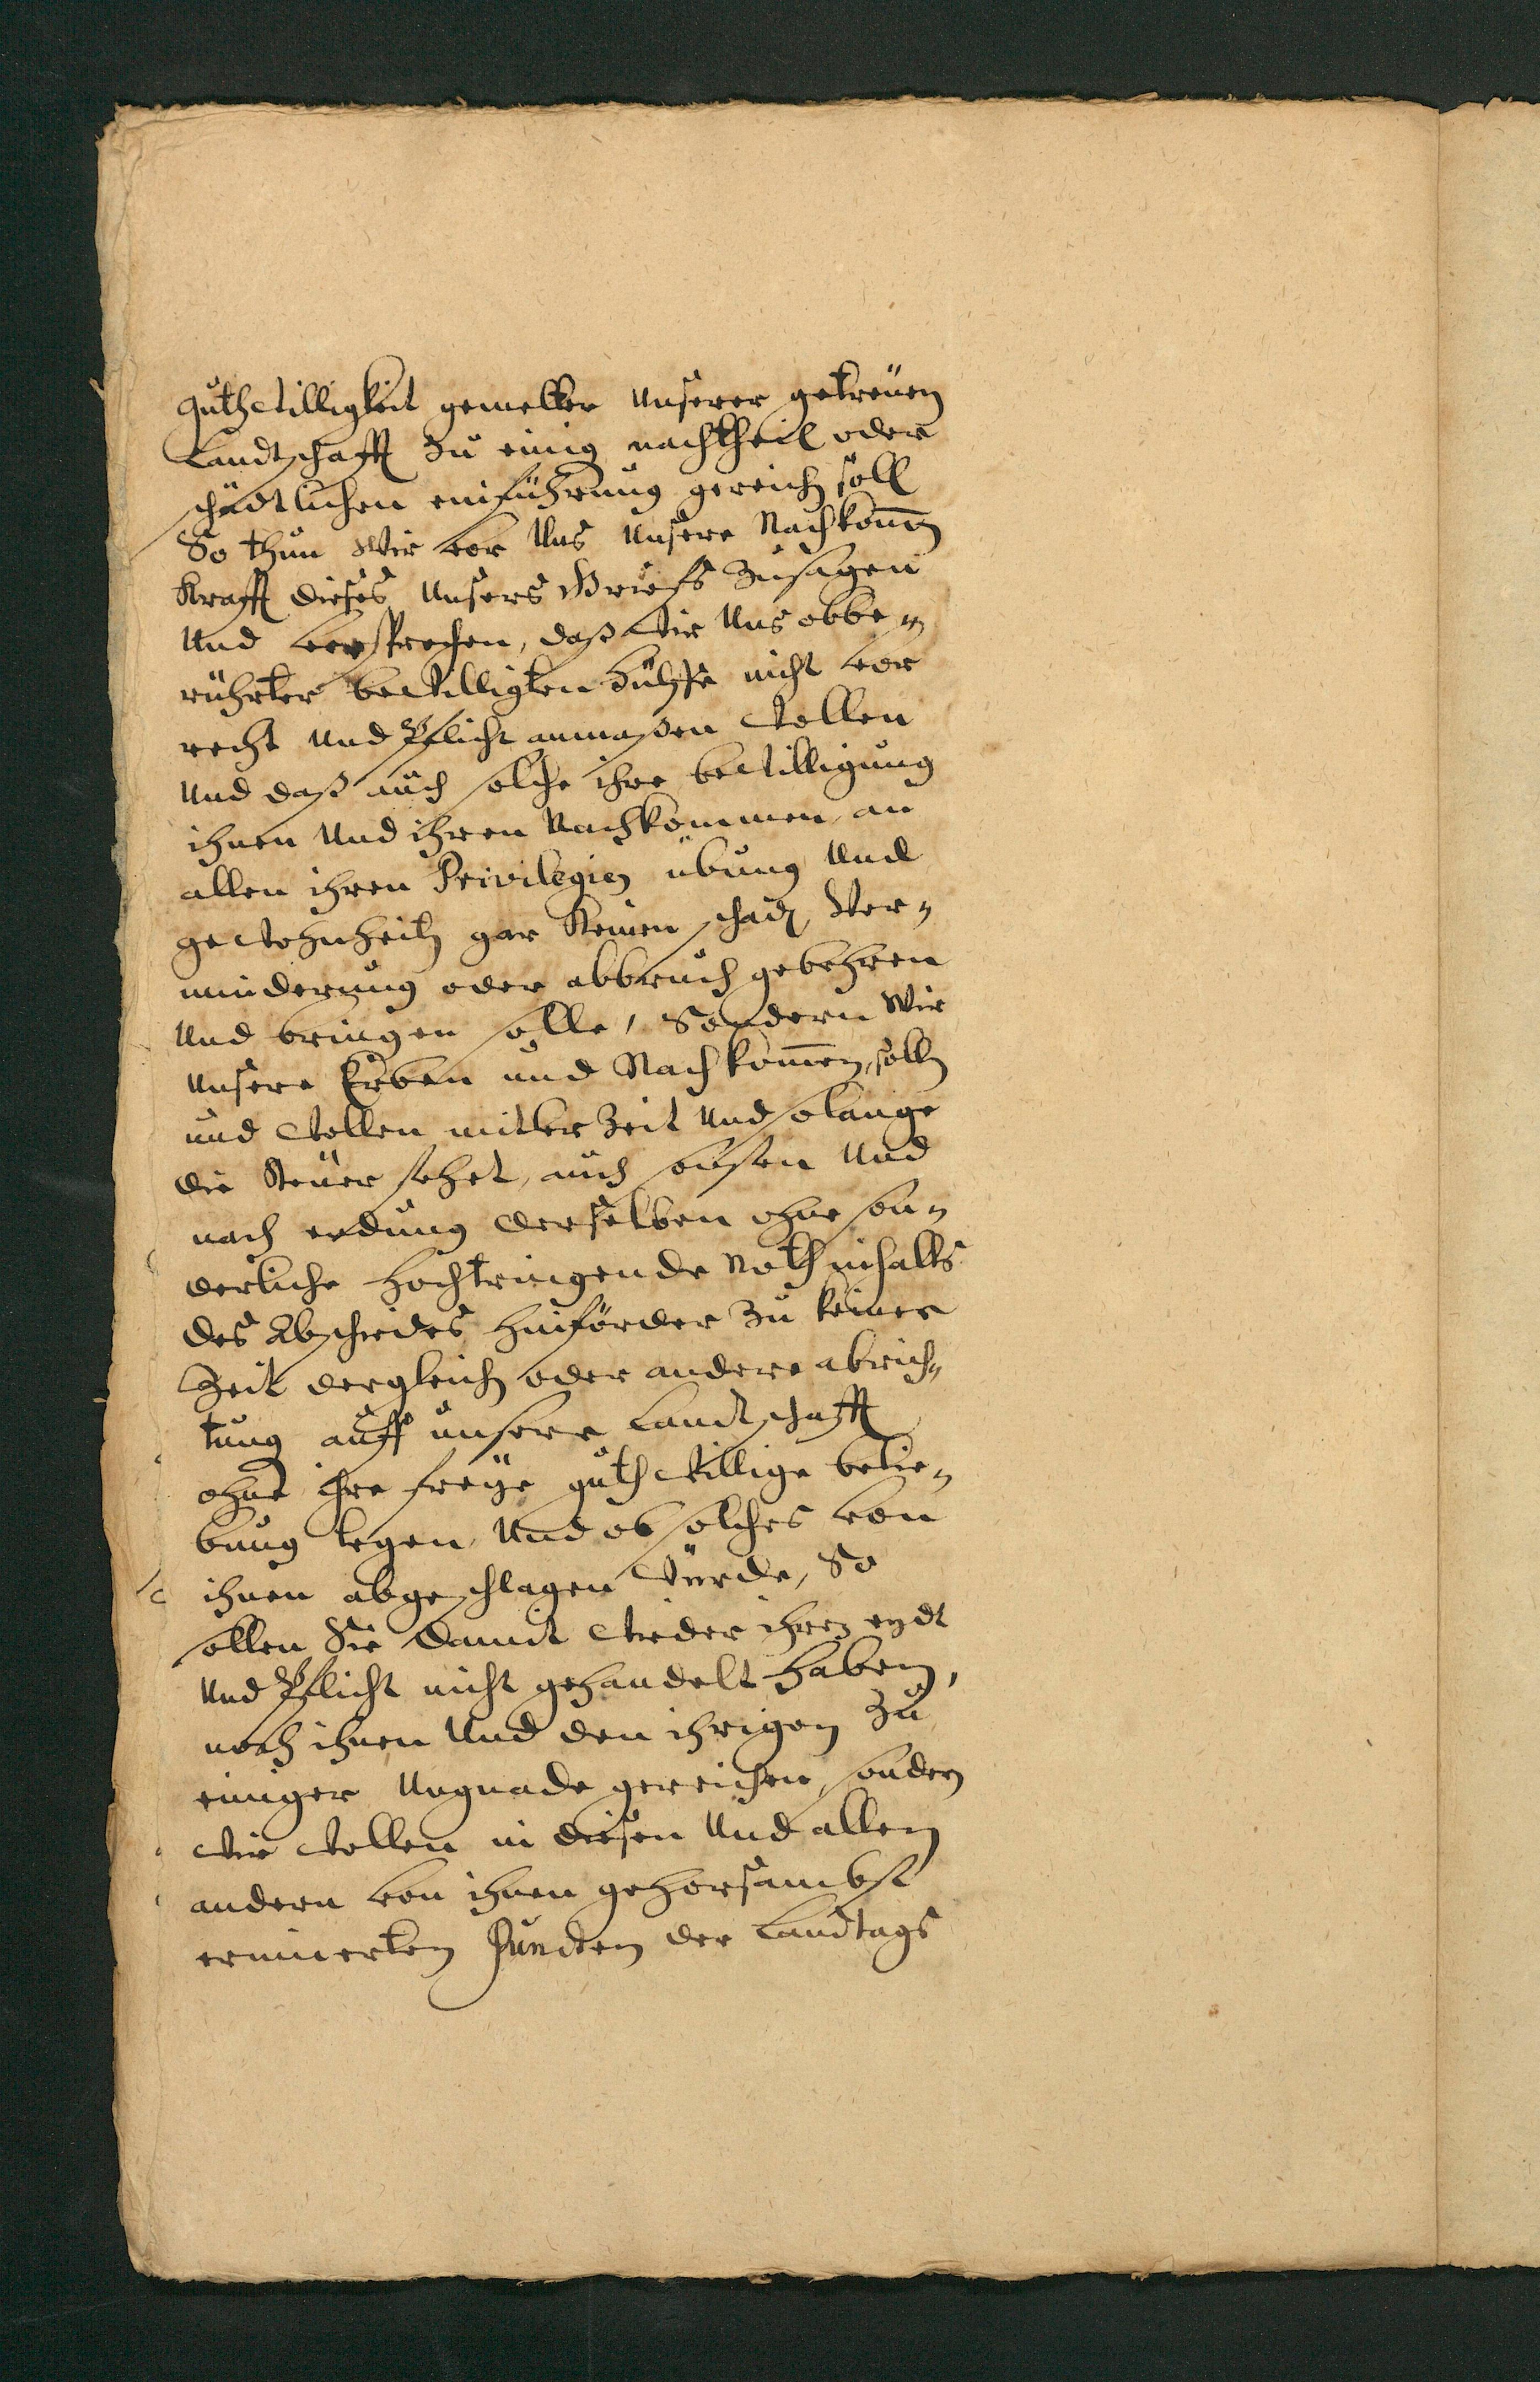 guthwilligkeit gemelter unserer getreüen
Landtschafft zu einig nachtheil oder
schädtlichen einführung gereich soll
So thun Wir vor Uns Unsere Nachkom̄en
Krafft dieses Unsers Briefs zusagen
Und versprechen, daß wir Uns obbe-
rührter bewilligten Hülffe nicht vor
recht und Pflicht anmaßen wollen
Und daß auch solche ihre bewilligung
ihnen Und ihren Nachkommen, an
allen ihren Privilegien übung Und
gewohnheiten gar keinen schaden, Ver-
minderung oder abbruch gebehren
Und bringen solle, Sondern Wir
Unsere Erben und Nachkom̄en, sollen
und wollen mitler Zeit Und solange
die Steuer stehet, auch sonsten Und
nach endung derselben ohne son-
derliche hochtringende Noth inhalts
des Abschiedes hinförder zu keiner
Zeit dergleichen oder andere abrich-
tung auff unsere Landtschafft
ohne ihre freÿe guthwillige belie-
bung legen, Und ob solches von
ihnen abgeschlagen würde, So
sollen Sie damit wieder ihren eydt
Und Pflicht nicht gehandelt haben,
noch ihnen Und den ihrigen zu
einiger Ungnade gereichen, sondern
wir wollen in diesen Und allen
andern von ihnen gehorsambst
erinnerten Puncten der Landtags